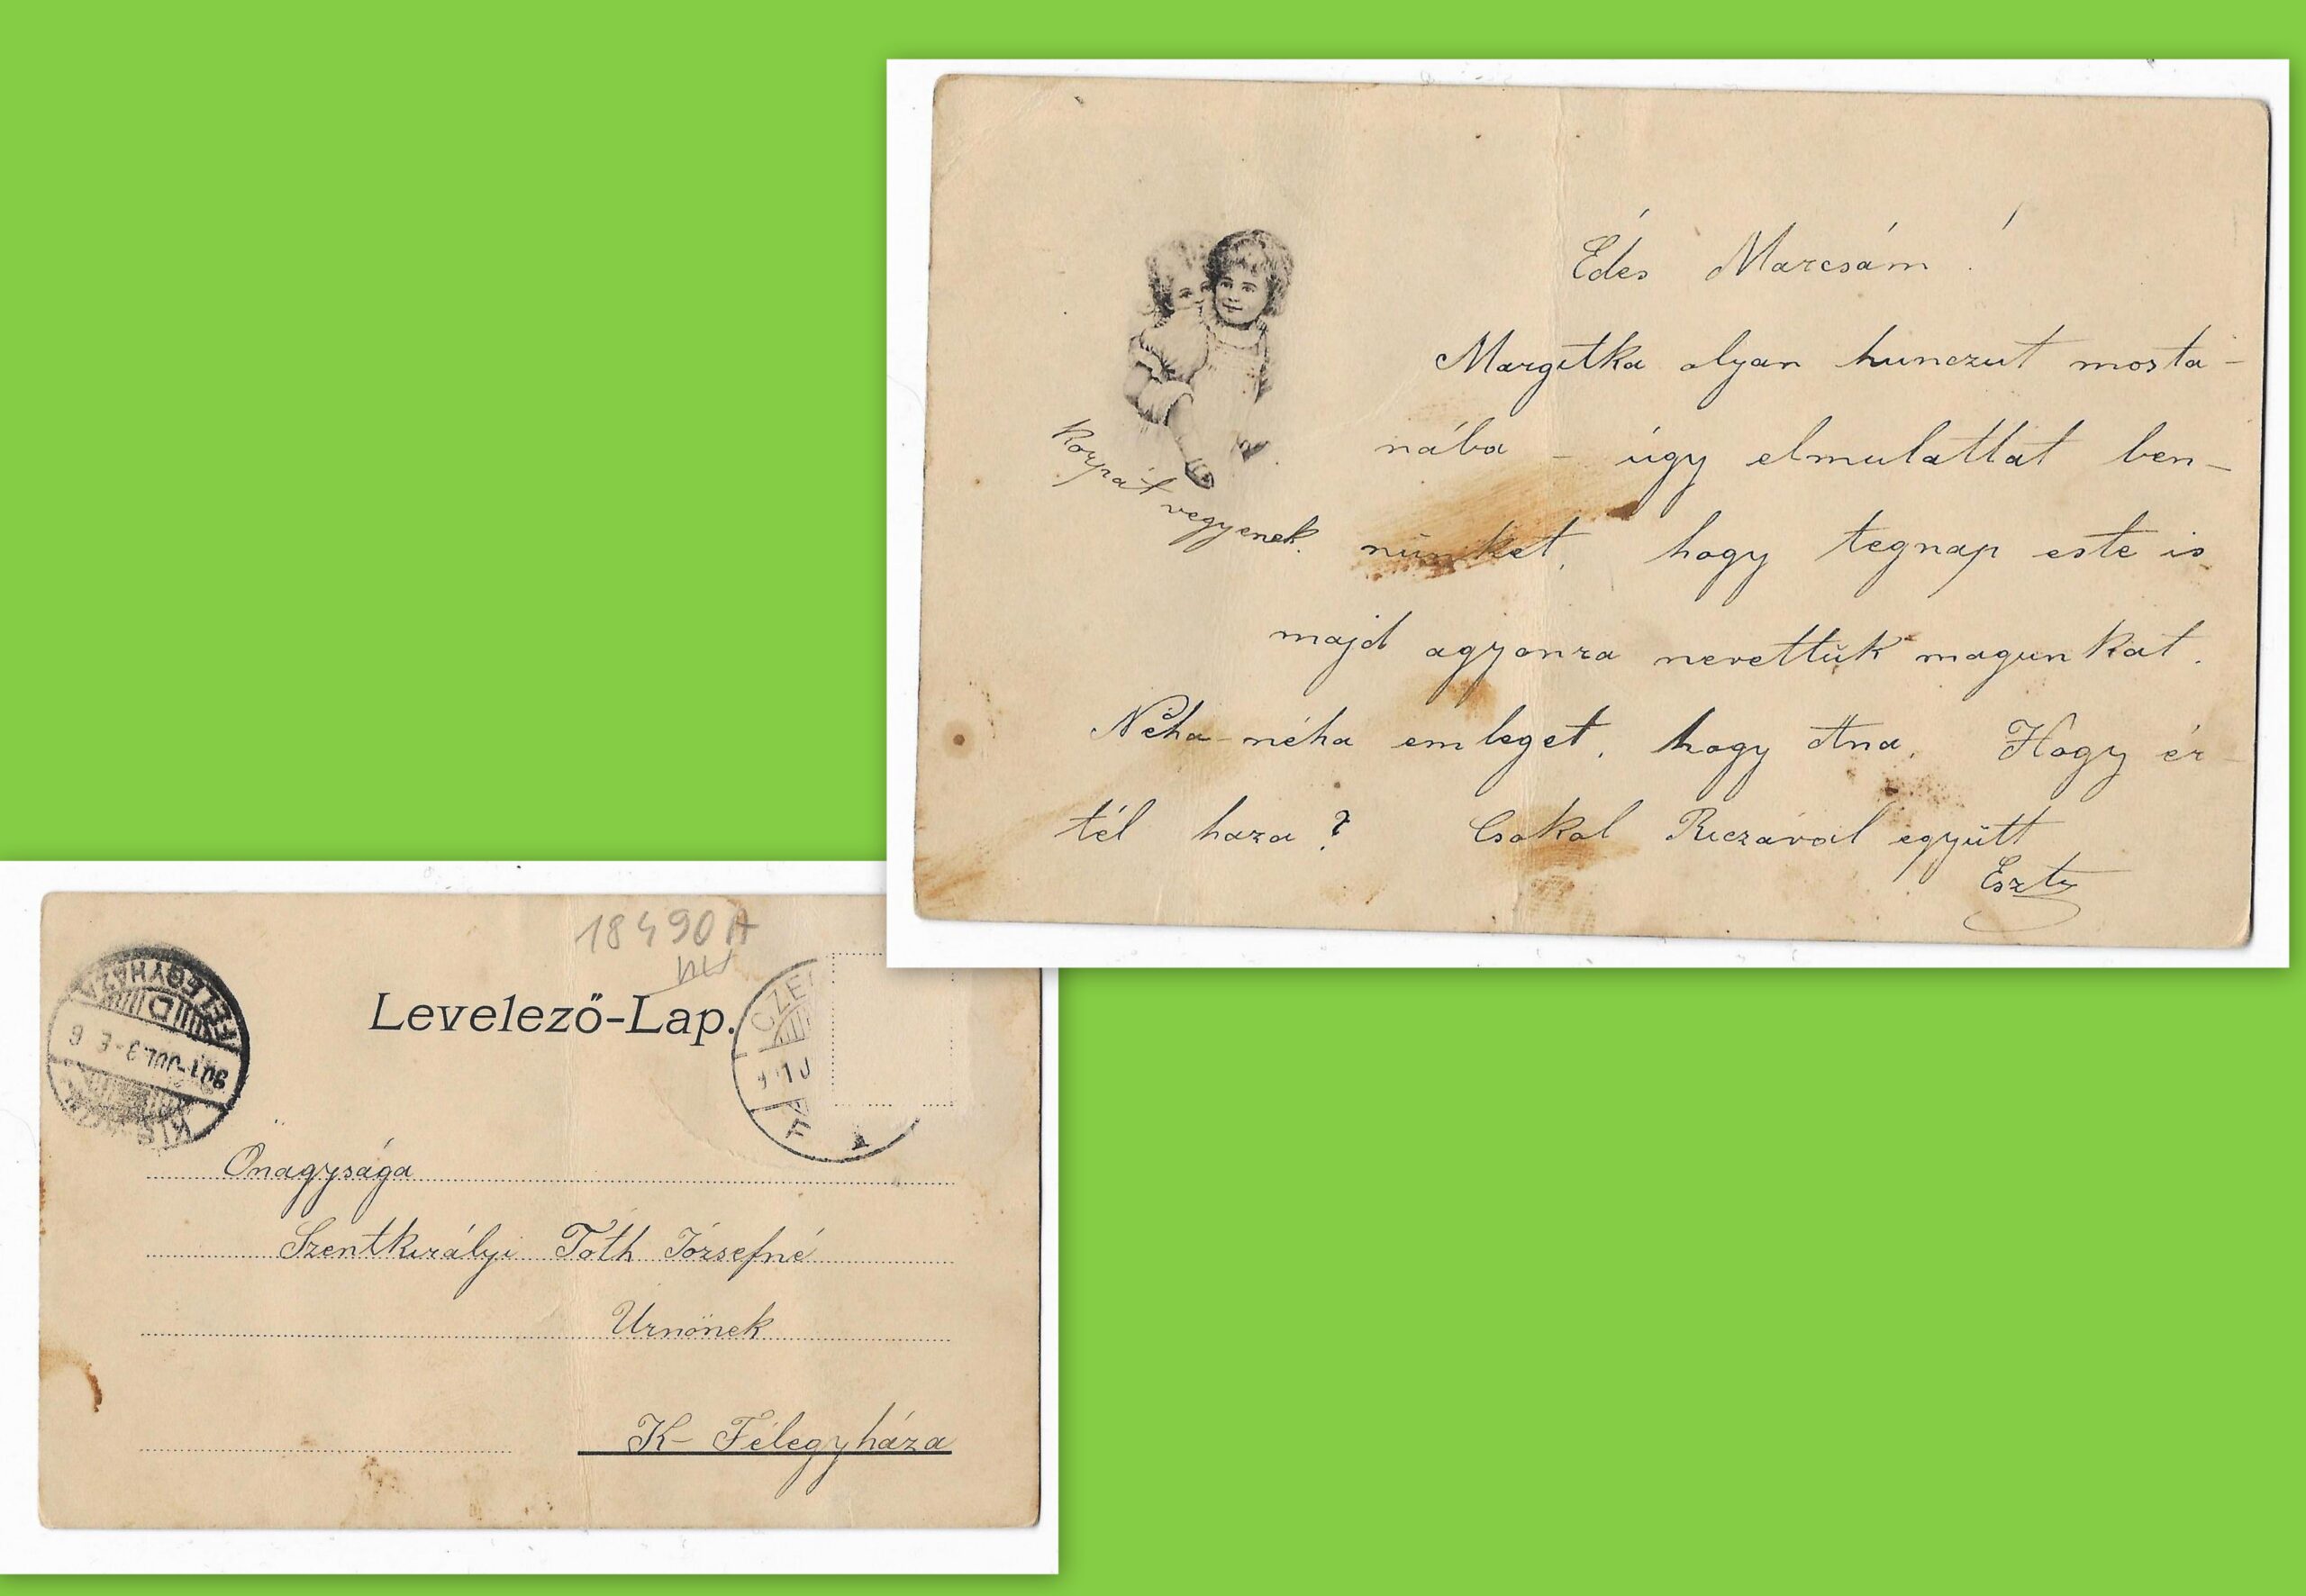 Édes Marcsám!
Margitka olyan hunczut mosta-
nába – úgy elmulattat ben-
nünket, hogy tegnap este is
majd agyonra nevettük magunkat.
Néha-néha emleget, hogy Ana. Hogy ér-
tél haza? Csókol Riczával együtt
Eszti
Korpát vegyenek.
18490A
Levelező-Lap.
FÉLEGYHÁZA
D
901 JUL 3
KIS
CZE
Önagysága
Szentkirályi Tóth Józsefné
Urnőnek
K– Félegyháza